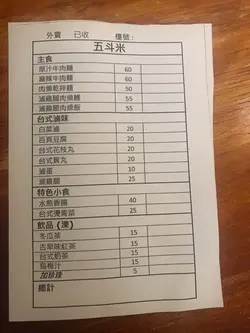 外賣 已收 檯號:
五斗米
主食
原汁牛肉麵 60
麻辣牛肉麵 60
肉燥乾拌麵 50
滷雞腿肉燥麵 55
滷雞腿肉燥飯 55
台式滷味
白菜滷 20
百頁豆腐 20
台式花枝丸 20
台式貢丸 20
滷蛋 10
滷雞腿 25
特色小食
水煎香腸 40
台式燙青菜 25
飲品 (凍)
冬瓜茶 15
古早味紅茶 15
台式奶茶 15
烏梅汁 15
加珍珠 5
總計